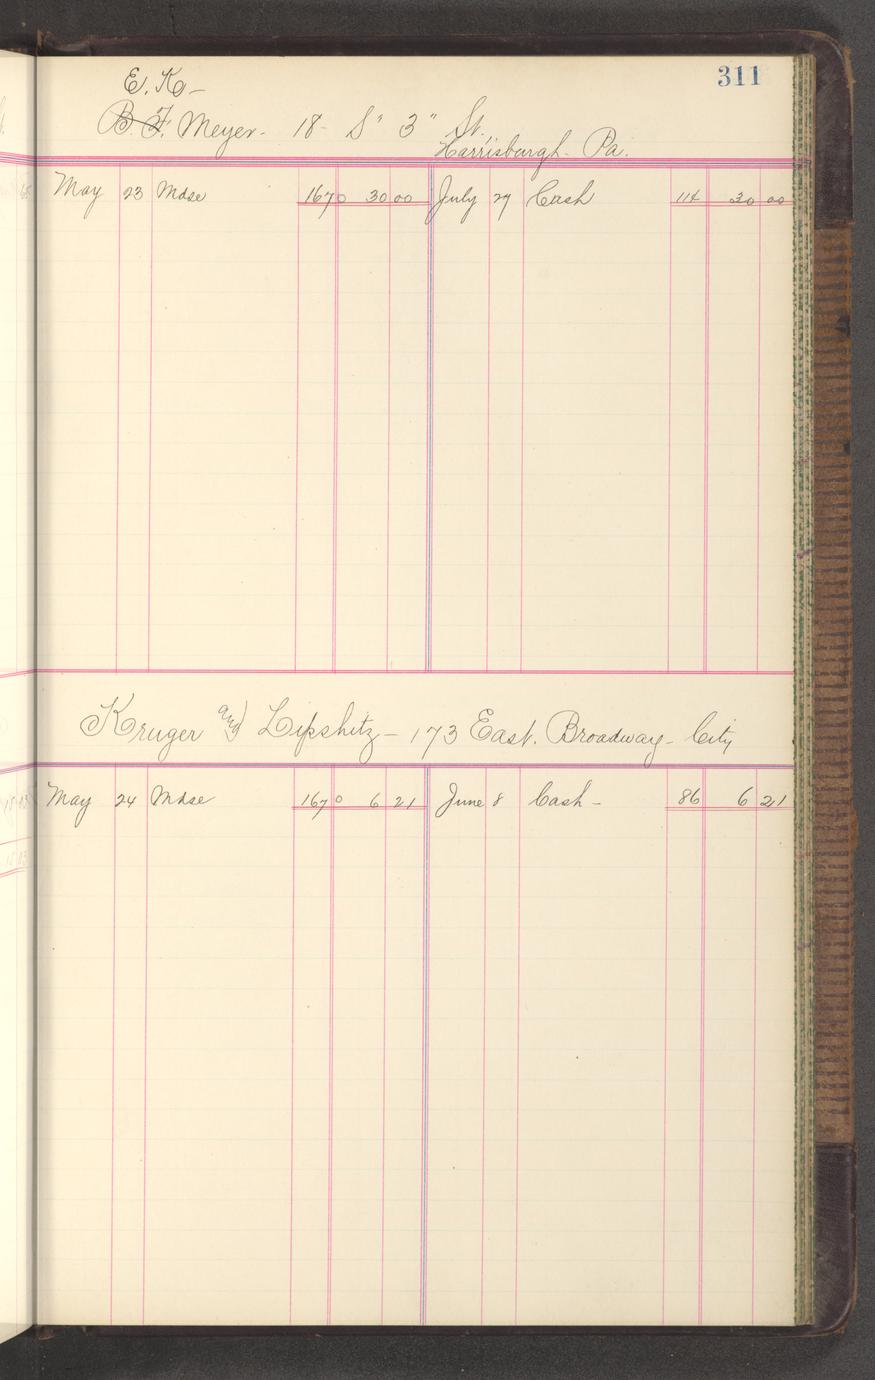 311
E. K.-
B. F. Meyer- 18- S" 3" St.
Harrisburgh- Pa.
May 23 Mdse 1670 30 00 July 27 Cash 114 30 00
Kruger and Lipshitz- 173 East. Broadway- City
May 24 Mdse 1670 6 21 June 8 Cash- 86 6 21